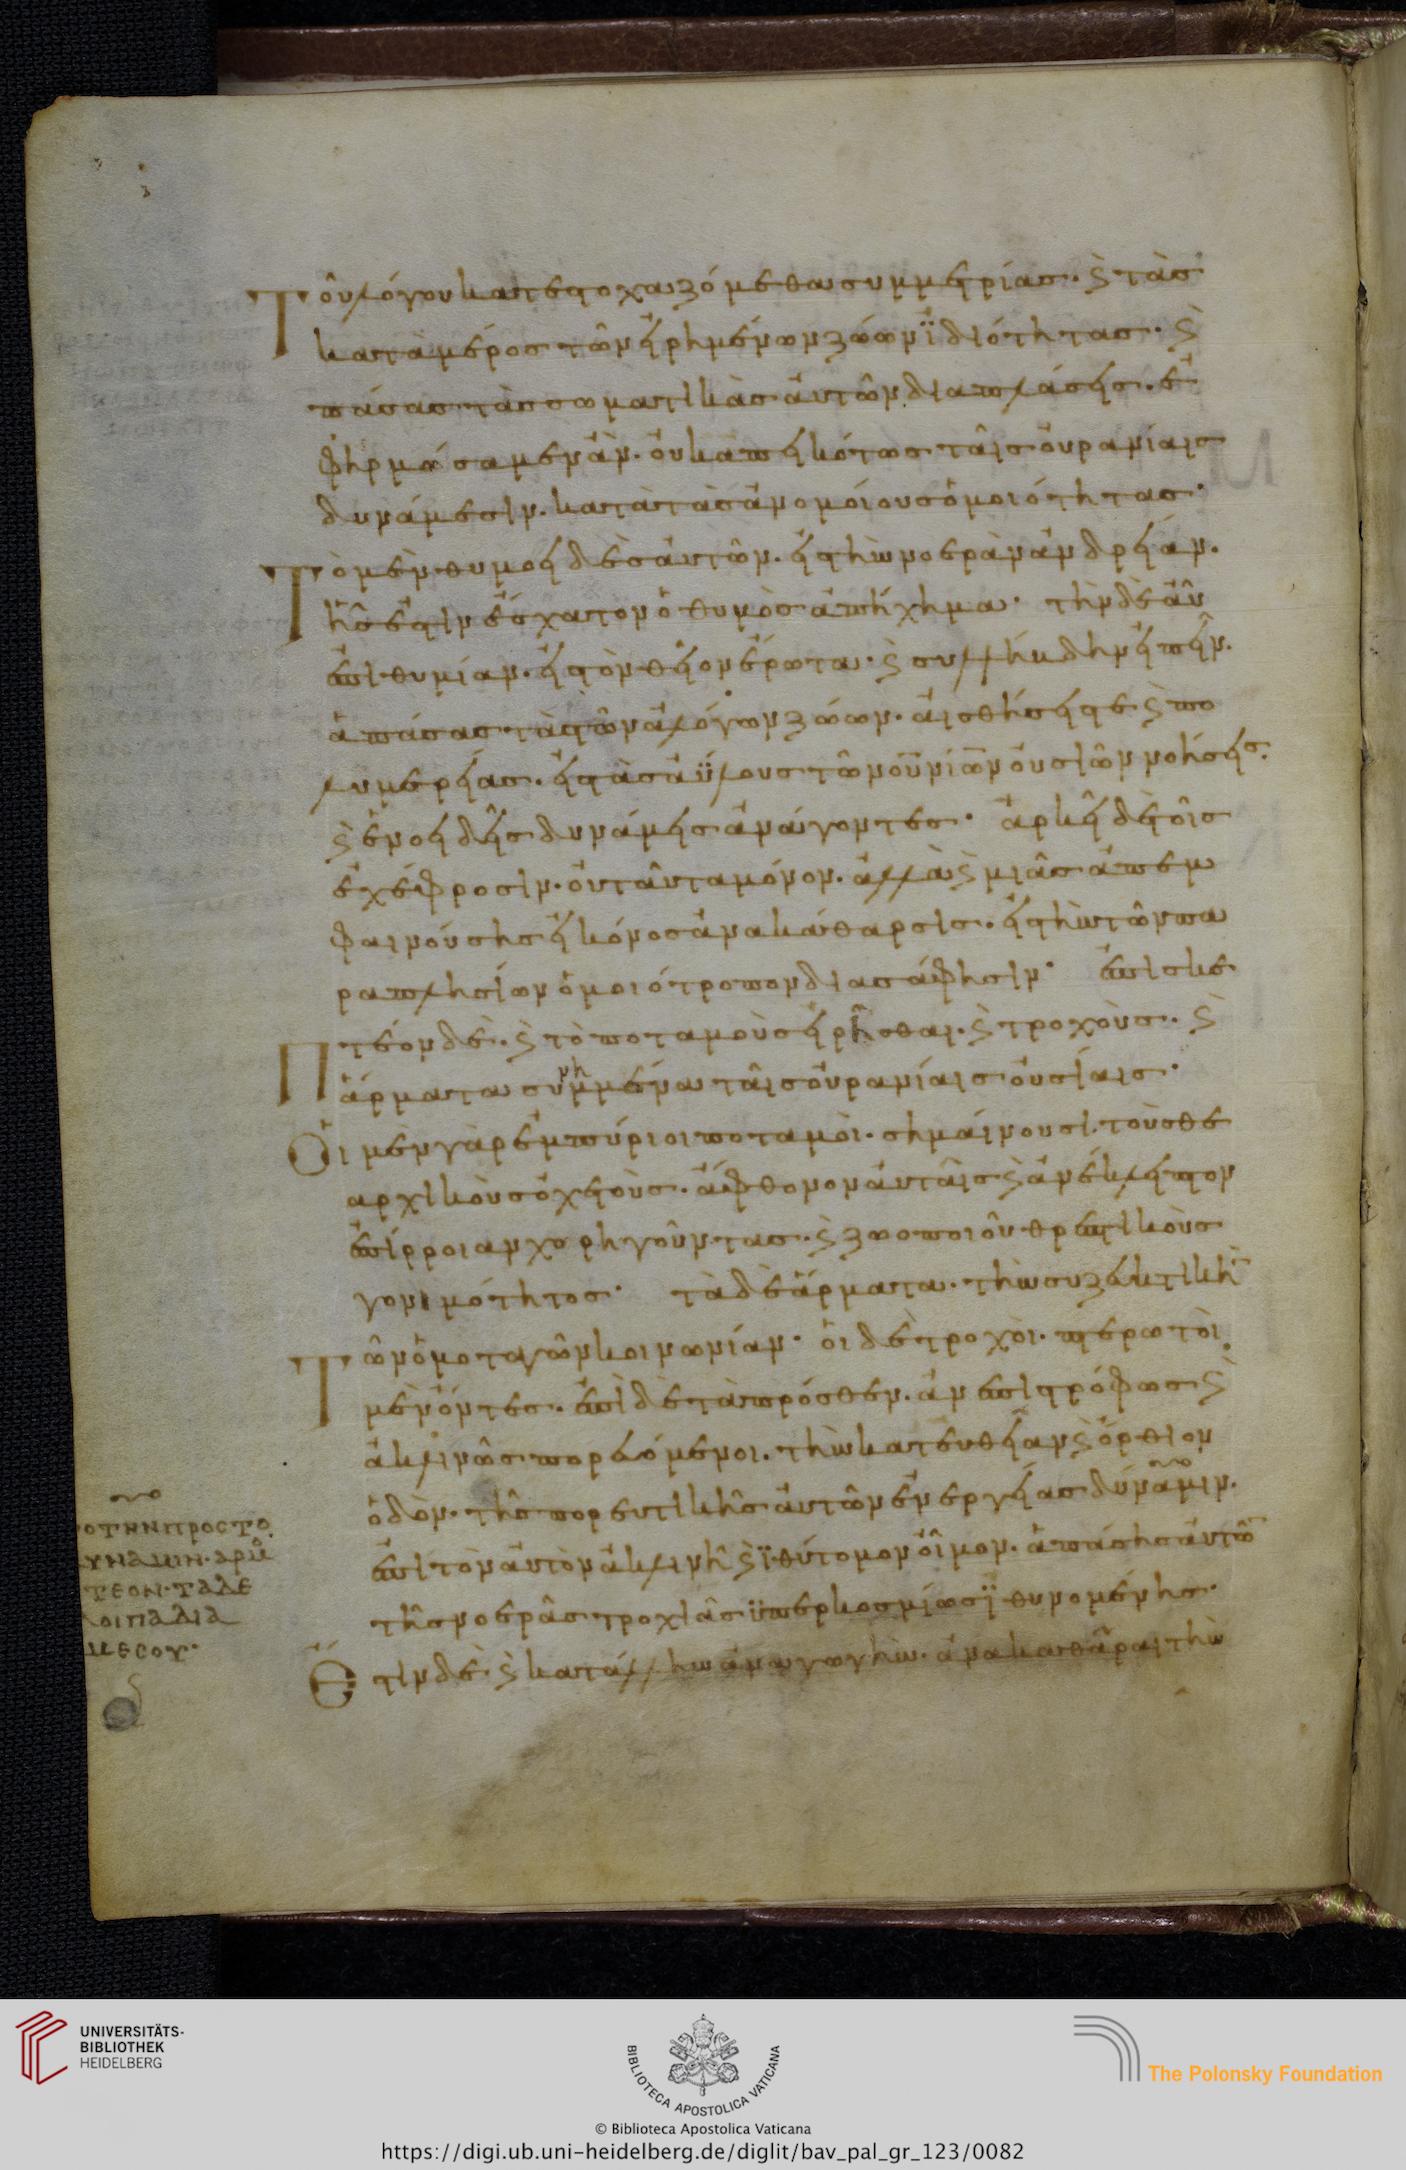 Τοῦ λόγου κατεστοχαζόμεθα συμμετρίας. ϗ τὰς
κατὰ μέρος τῶν εἰρημένων ζώων ϊδιότητας. ϗ
πάσας τὰς σωματικὰς αὐτῶν διαπλάσεις. ἐ
φηρμόσαμεν ἂν. οὐκ ἀπεικότως ταῖς οὐρανίαις
δυνάμεσιν. κατὰ τὰς ἀνομοίους ὁμοιότητας·
Τὸ μὲν θυμοειδὲς αὐτῶν. εἰς τὴν νοερὰν ἀνδρείαν.
ἧς ἐστὶν ἔσχατον ὁ θυμὸς ἀπήχημα· τὴν δὲ αὖ
ἐπιθυμίαν. εἰς τὸν θεῖον ἔρωτα. ϗ συλλήβδην εἰπεῖν.
ἁπάσας τὰς τῶν ἀλόγων ζώων. αἰσθήσεις τε ϗ πο
λυμερείας. εἰς τὰς ἀΰλους τῶν οὐνίων οὐσιῶν νοήσεις.
ϗ ἑνοειδεῖς δυνάμεις ἀνάγοντες· ἀρκεῖ δὲ τοῖς
ἐχέφροσιν. οὐ ταῦτα μόνον. ἀλλὰ ϗ μιᾶς ἀπεμ
φαινούσης εἰκόνος ἀνακάθαρσις. εἰς τὴν τῶν πα
ραπλησίων ὁμοιότροπον διασάφησιν· ἐπισκε
Πτέον δὲ. ϗ τὸ ποταμοὺς εἰρῆσθαι. ϗ τροχοὺς. ϗ
ἅρματα συνημμένα ταῖς οὐρανίαις οὐσίαις·
Οἱ μὲν γὰρ ἐμπύριοι ποταμοὶ. σημαίνουσι τοὺς θε
αρχικοὺς ὀχετοὺς. ἄφθονον αὐταῖς ϗ ἀνέκλειπτον
ἐπίρροιαν χορηγοῦντας. ϗ ζωοποιοῦ θρεπτικοὺς
γονιμότητος· τὰ δὲ ἅρματα. τὴν συζευκτικὴν
Τῶν ὁμοταγῶν κοινωνίαν· οἱ δὲ τροχοὶ. πτερωτοὶ
μὲν ὄντες. ἐπὶ δὲ τὰ πρόσθεν. ἀνεπιστρόφως ϗ
ἀκλινῶς πορευόμενοι. τὴν κατευθεῖαν ϗ ὄρθιον
ὁδὸν. τῆς πορευτικῆς αὐτῶν ἐνεργείας δύναμιν.
ἐπὶ τὸν αὐτὸν ἀκλινῆ ϗ ϊθύτομον οἶμον. ἁπάσης αὐτῶν
τῆς νοερᾶς τροχιᾶς ϋπερκοσμίως ϊθυνομένης·
Ἔστιν δὲ. ϗ κατ' ἄλλην ἀναγωγὴν. ἀνακαθᾶραι τὴν
ΟΤΗΝΠΡΟΣΤΟ
ΥΝΑΜΙΝ· ΑΡΜ
ΤΕΟΝ· ΤΑΔΕ
ΛΟΙΠΑΔΙΑ
ΜΕΣΟΥ·
UNIVERSITÄTS-
BIBLIOTHEK
HEIDELBERG
BIBLIOTECA APOSTOLICA VATICANA
The Polonsky Foundation
© Biblioteca Apostolica Vaticana
https://digi.ub.uni-heidelberg.de/diglit/bav_pal_gr_123/0082